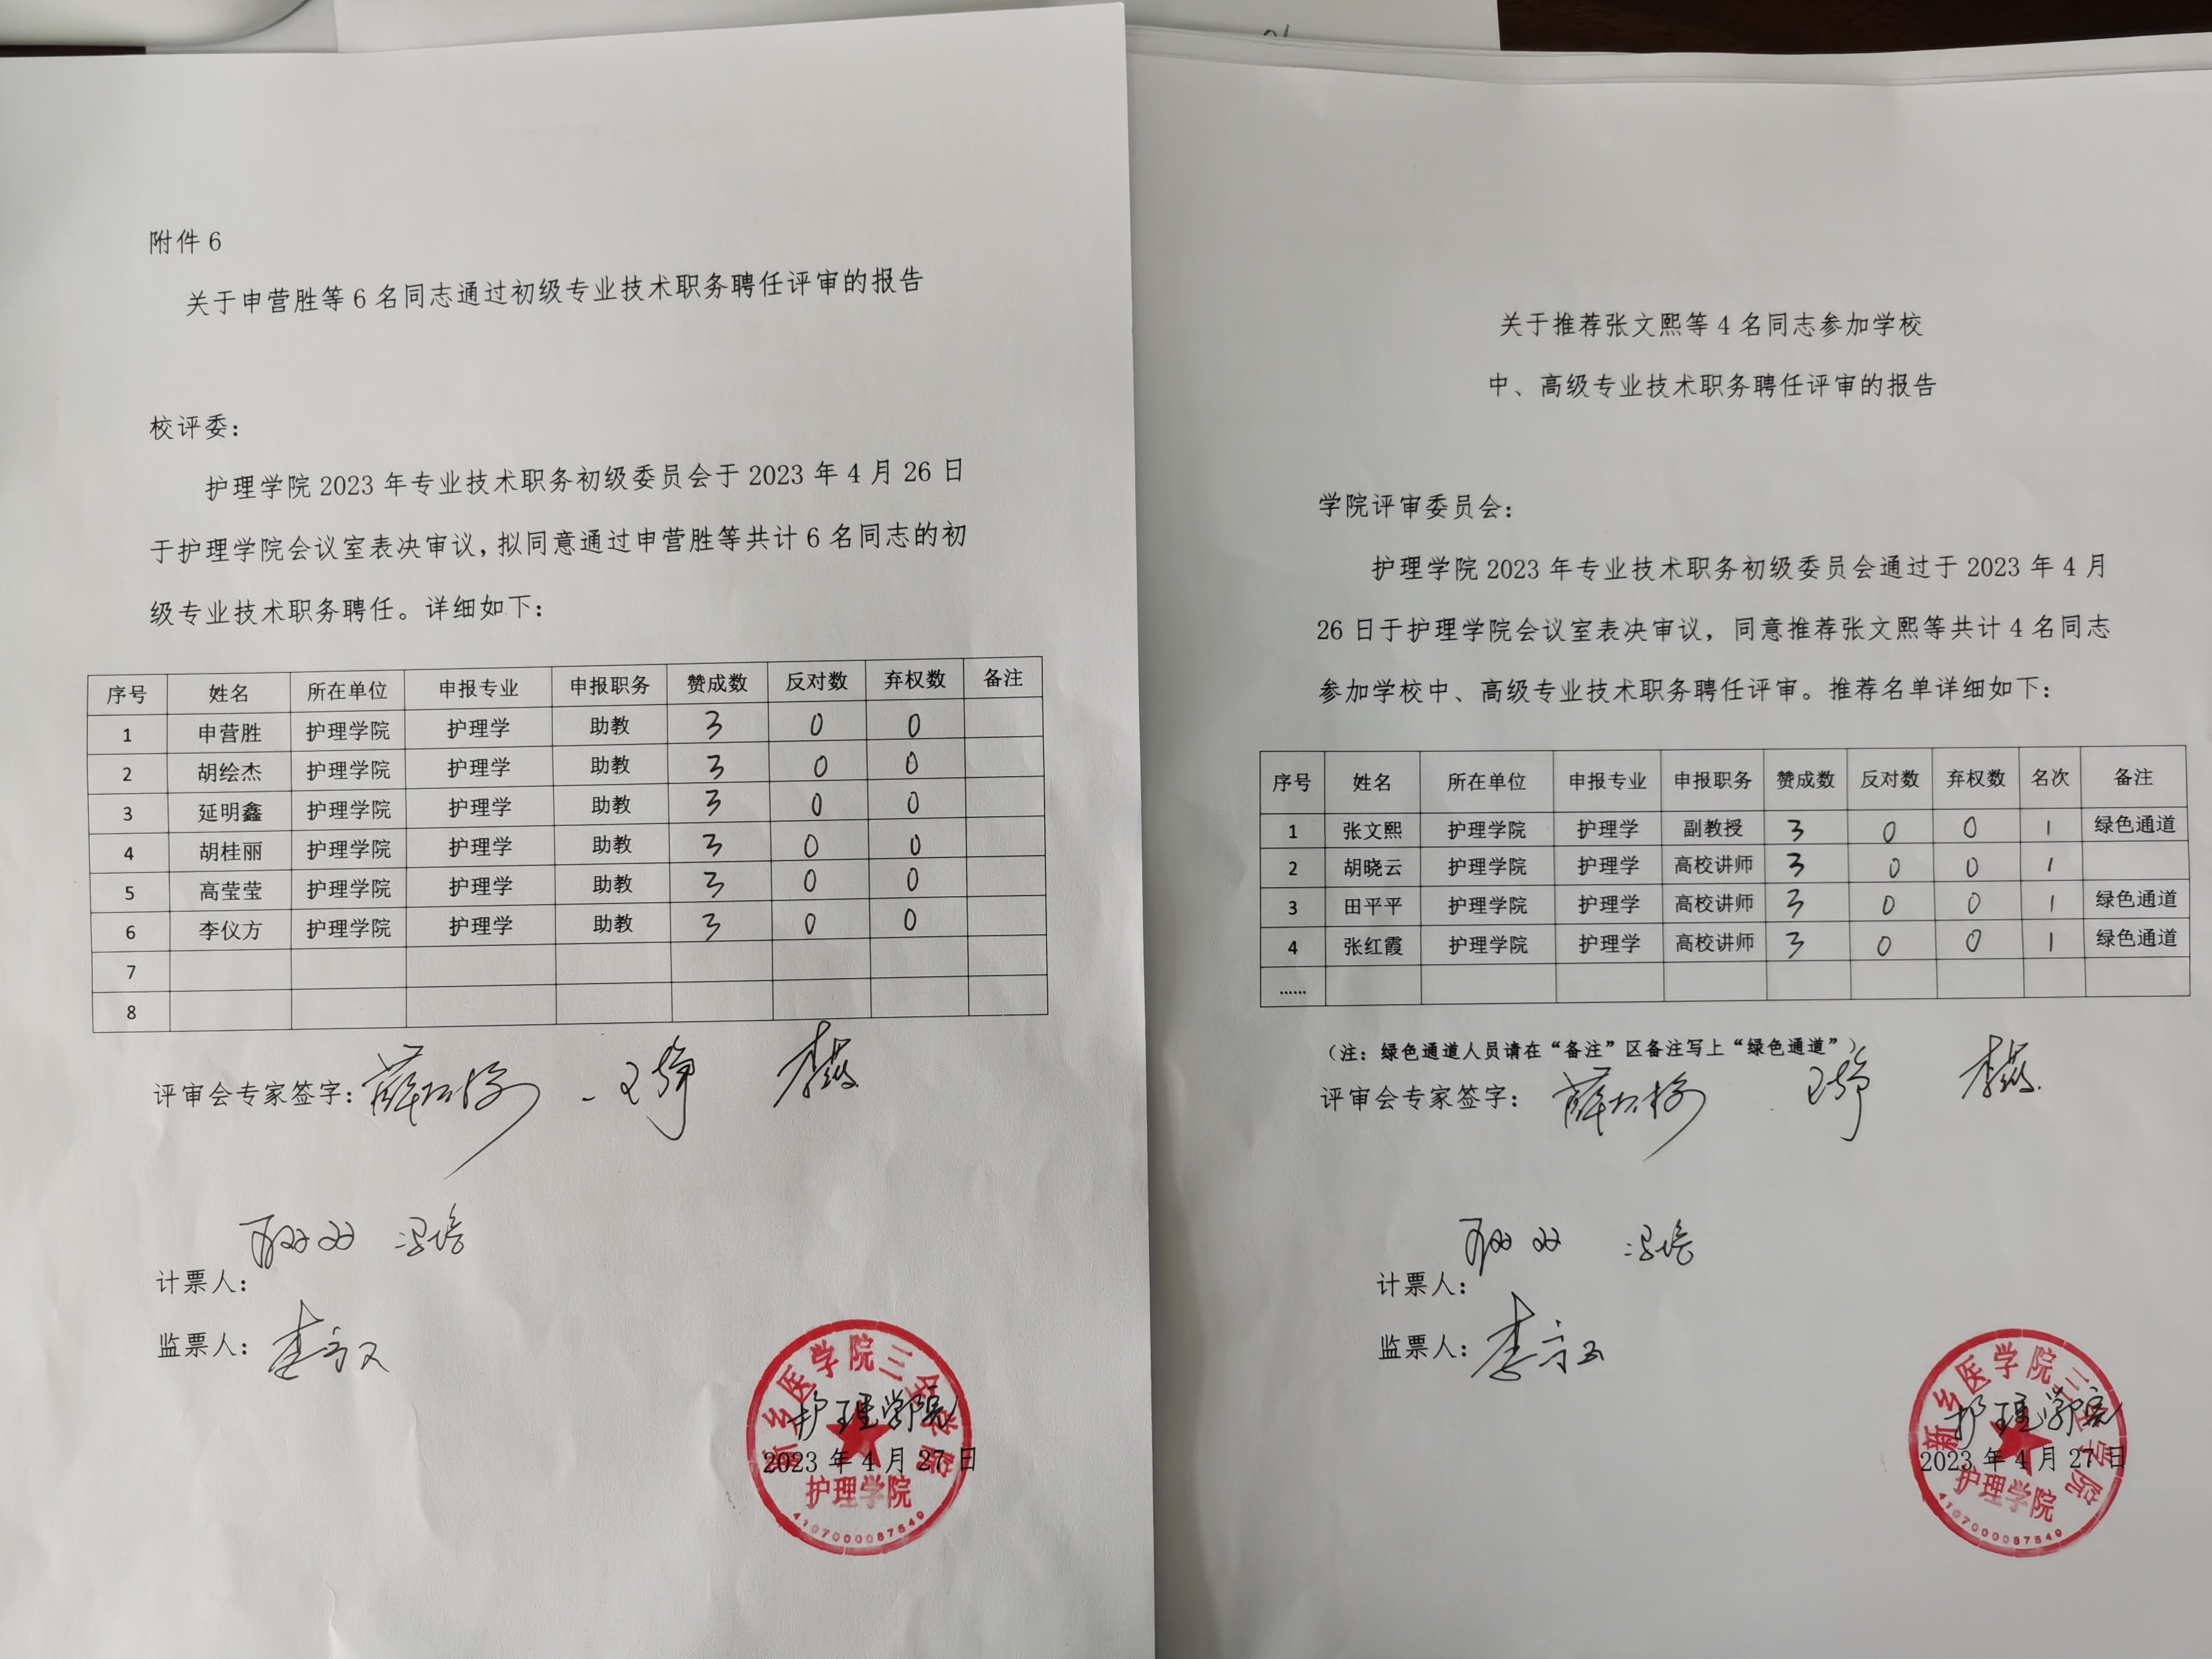 附件6
关于申营胜等6名同志通过初级专业技术职务聘任评审的报告
校评委：
护理学院2023年专业技术职务初级委员会于2023年4月26日
于护理学院会议室表决审议，拟同意通过申营胜等共计6名同志的初
级专业技术职务聘任。详细如下：
序号 姓名 所在单位 申报专业 申报职务 赞成数 反对数 弃权数 备注
1 申营胜 护理学院 护理学 助教 3 0 0
2 胡绘杰 护理学院 护理学 助教 3 0 0
3 延明鑫 护理学院 护理学 助教 3 0 0
4 胡桂丽 护理学院 护理学 助教 3 0 0
5 高莹莹 护理学院 护理学 助教 3 0 0
6 李仪方 护理学院 护理学 助教 3 0 0
7
8
评审会专家签字：
计票人：
监票人：
新乡医学院三全学院
护理学院
2023年4月27日
护理学院
4107000087549
关于推荐张文熙等4名同志参加学校
中、高级专业技术职务聘任评审的报告
学院评审委员会：
护理学院2023年专业技术职务初级委员会通过于2023年4月
26日于护理学院会议室表决审议，同意推荐张文熙等共计4名同志
参加学校中、高级专业技术职务聘任评审。推荐名单详细如下：
序号 姓名 所在单位 申报专业 申报职务 赞成数 反对数 弃权数 名次 备注
1 张文熙 护理学院 护理学 副教授 3 0 0 1 绿色通道
2 胡晓云 护理学院 护理学 高校讲师 3 0 0 1
3 田平平 护理学院 护理学 高校讲师 3 0 0 1 绿色通道
4 张红霞 护理学院 护理学 高校讲师 3 0 0 1 绿色通道
……
（注：绿色通道人员请在“备注”区备注写上“绿色通道”）
评审会专家签字：
计票人：
监票人：
新乡医学院三全学院
护理学院
2023年4月27日
护理学院
4107000087549